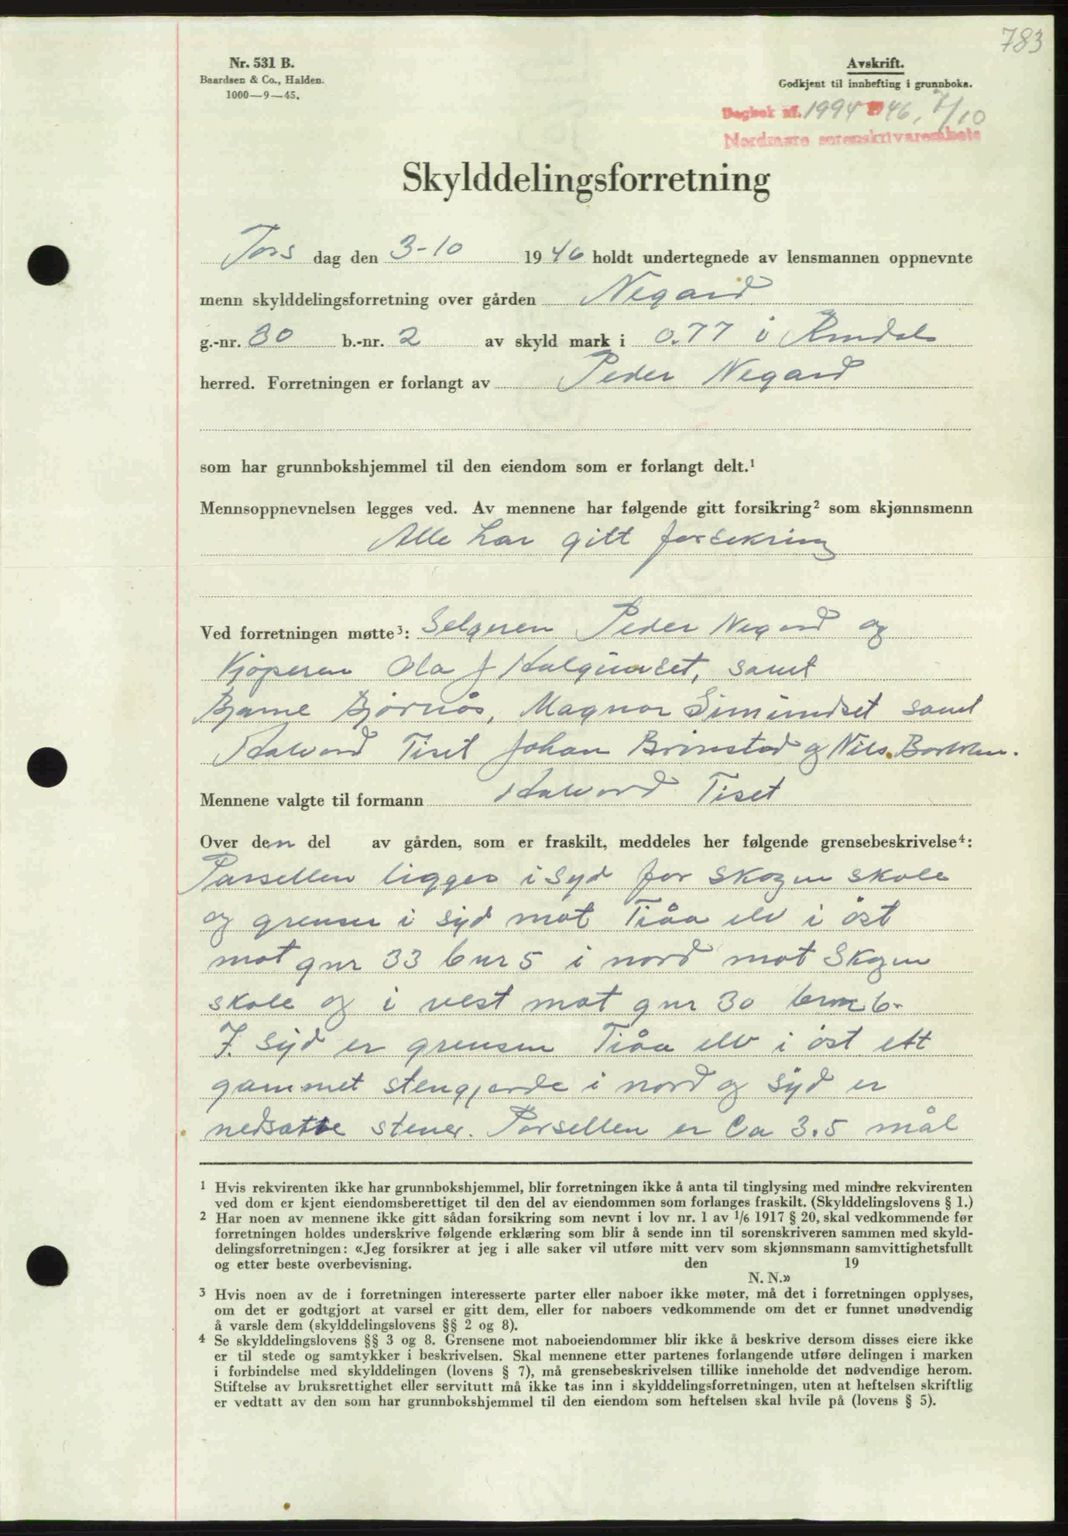 783
Nr. 531 B.
Baardsen & Co., Halden.
1000—9—45.
Avskrift.
Godkjent til innhefting i grunnboka.
Dagbok nr. 1994 1946, 7/10
Nordmøre sorenskrivarembete
Skylddelingsforretning
Tors dag den 3-10 1946 holdt undertegnede av lensmannen oppnevnte
menn skylddelingsforretning over gården Negard
g.-nr. 30 b.-nr. 2 av skyld mark i 0.77 i Rindal
herred. Forretningen er forlangt av Peder Negard
som har grunnbokshjemmel til den eiendom som er forlangt delt.¹
Mennsoppnevnelsen legges ved. Av mennene har følgende gitt forsikring² som skjønnsmenn
Alle har gitt forsikring
Ved forretningen møtte³: Selgeren Peder Negard og
Kjøperen Ola J Halgunset, samt
Bjarne Bjørnås, Magnar Simundset samt
Halvard Tiset Johan Brinstad og Nils
Mennene valgte til formann Halvard Tiset
Over den del av gården, som er fraskilt, meddeles her følgende grensebeskrivelse⁴:
Parsellen ligger i syd for Skogen skole
og grenser i syd mot Tiåa elv i øst
mot gnr 33 bnr 5 i nord mot Skogen
skole og i vest mot gnr 30 bnr 6.
I syd er grensen Tiåa elv i øst ett
gammet stengjerde i nord og syd er
nedsatte stener. Parsellen er Ca 3.5 mål
¹ Hvis rekvirenten ikke har grunnbokshjemmel, blir forretningen ikke å anta til tinglysing med mindre rekvirenten
ved dom er kjent eiendomsberettiget til den del av eiendommen som forlanges fraskilt. (Skylddelingslovens § 1.)
² Har noen av mennene ikke gitt sådan forsikring som nevnt i lov nr. 1 av 1/6 1917 § 20, skal vedkommende før
forretningen holdes underskrive følgende erklæring som blir å sende inn til sorenskriveren sammen med skyld-
delingsforretningen: «Jeg forsikrer at jeg i alle saker vil utføre mitt verv som skjønnsmann samvittighetsfullt
og etter beste overbevisning. den 19
N. N.»
³ Hvis noen av de i forretningen interesserte parter eller naboer ikke møter, må det i forretningen opplyses,
om det er godtgjort at varsel er gitt dem, eller for naboers vedkommende om det er funnet unødvendig
å varsle dem (skylddelingslovens §§ 2 og 8).
⁴ Se skylddelingslovens §§ 3 og 8. Grensene mot naboeiendommer blir ikke å beskrive dersom disses eiere ikke
er til stede og samtykker i beskrivelsen. Skal mennene etter partenes forlangende utføre delingen i marken
i forbindelse med skylddelingen (lovens § 7), må grensebeskrivelsen tillike inneholde det nødvendige herom.
Stiftelse av bruksrettighet eller servitutt må ikke tas inn i skylddelingsforretningen, uten at heftelsen skriftlig
er vedtatt av den som har grunnbokshjemmel til den eiendom som heftelsen skal hvile på (lovens § 5).